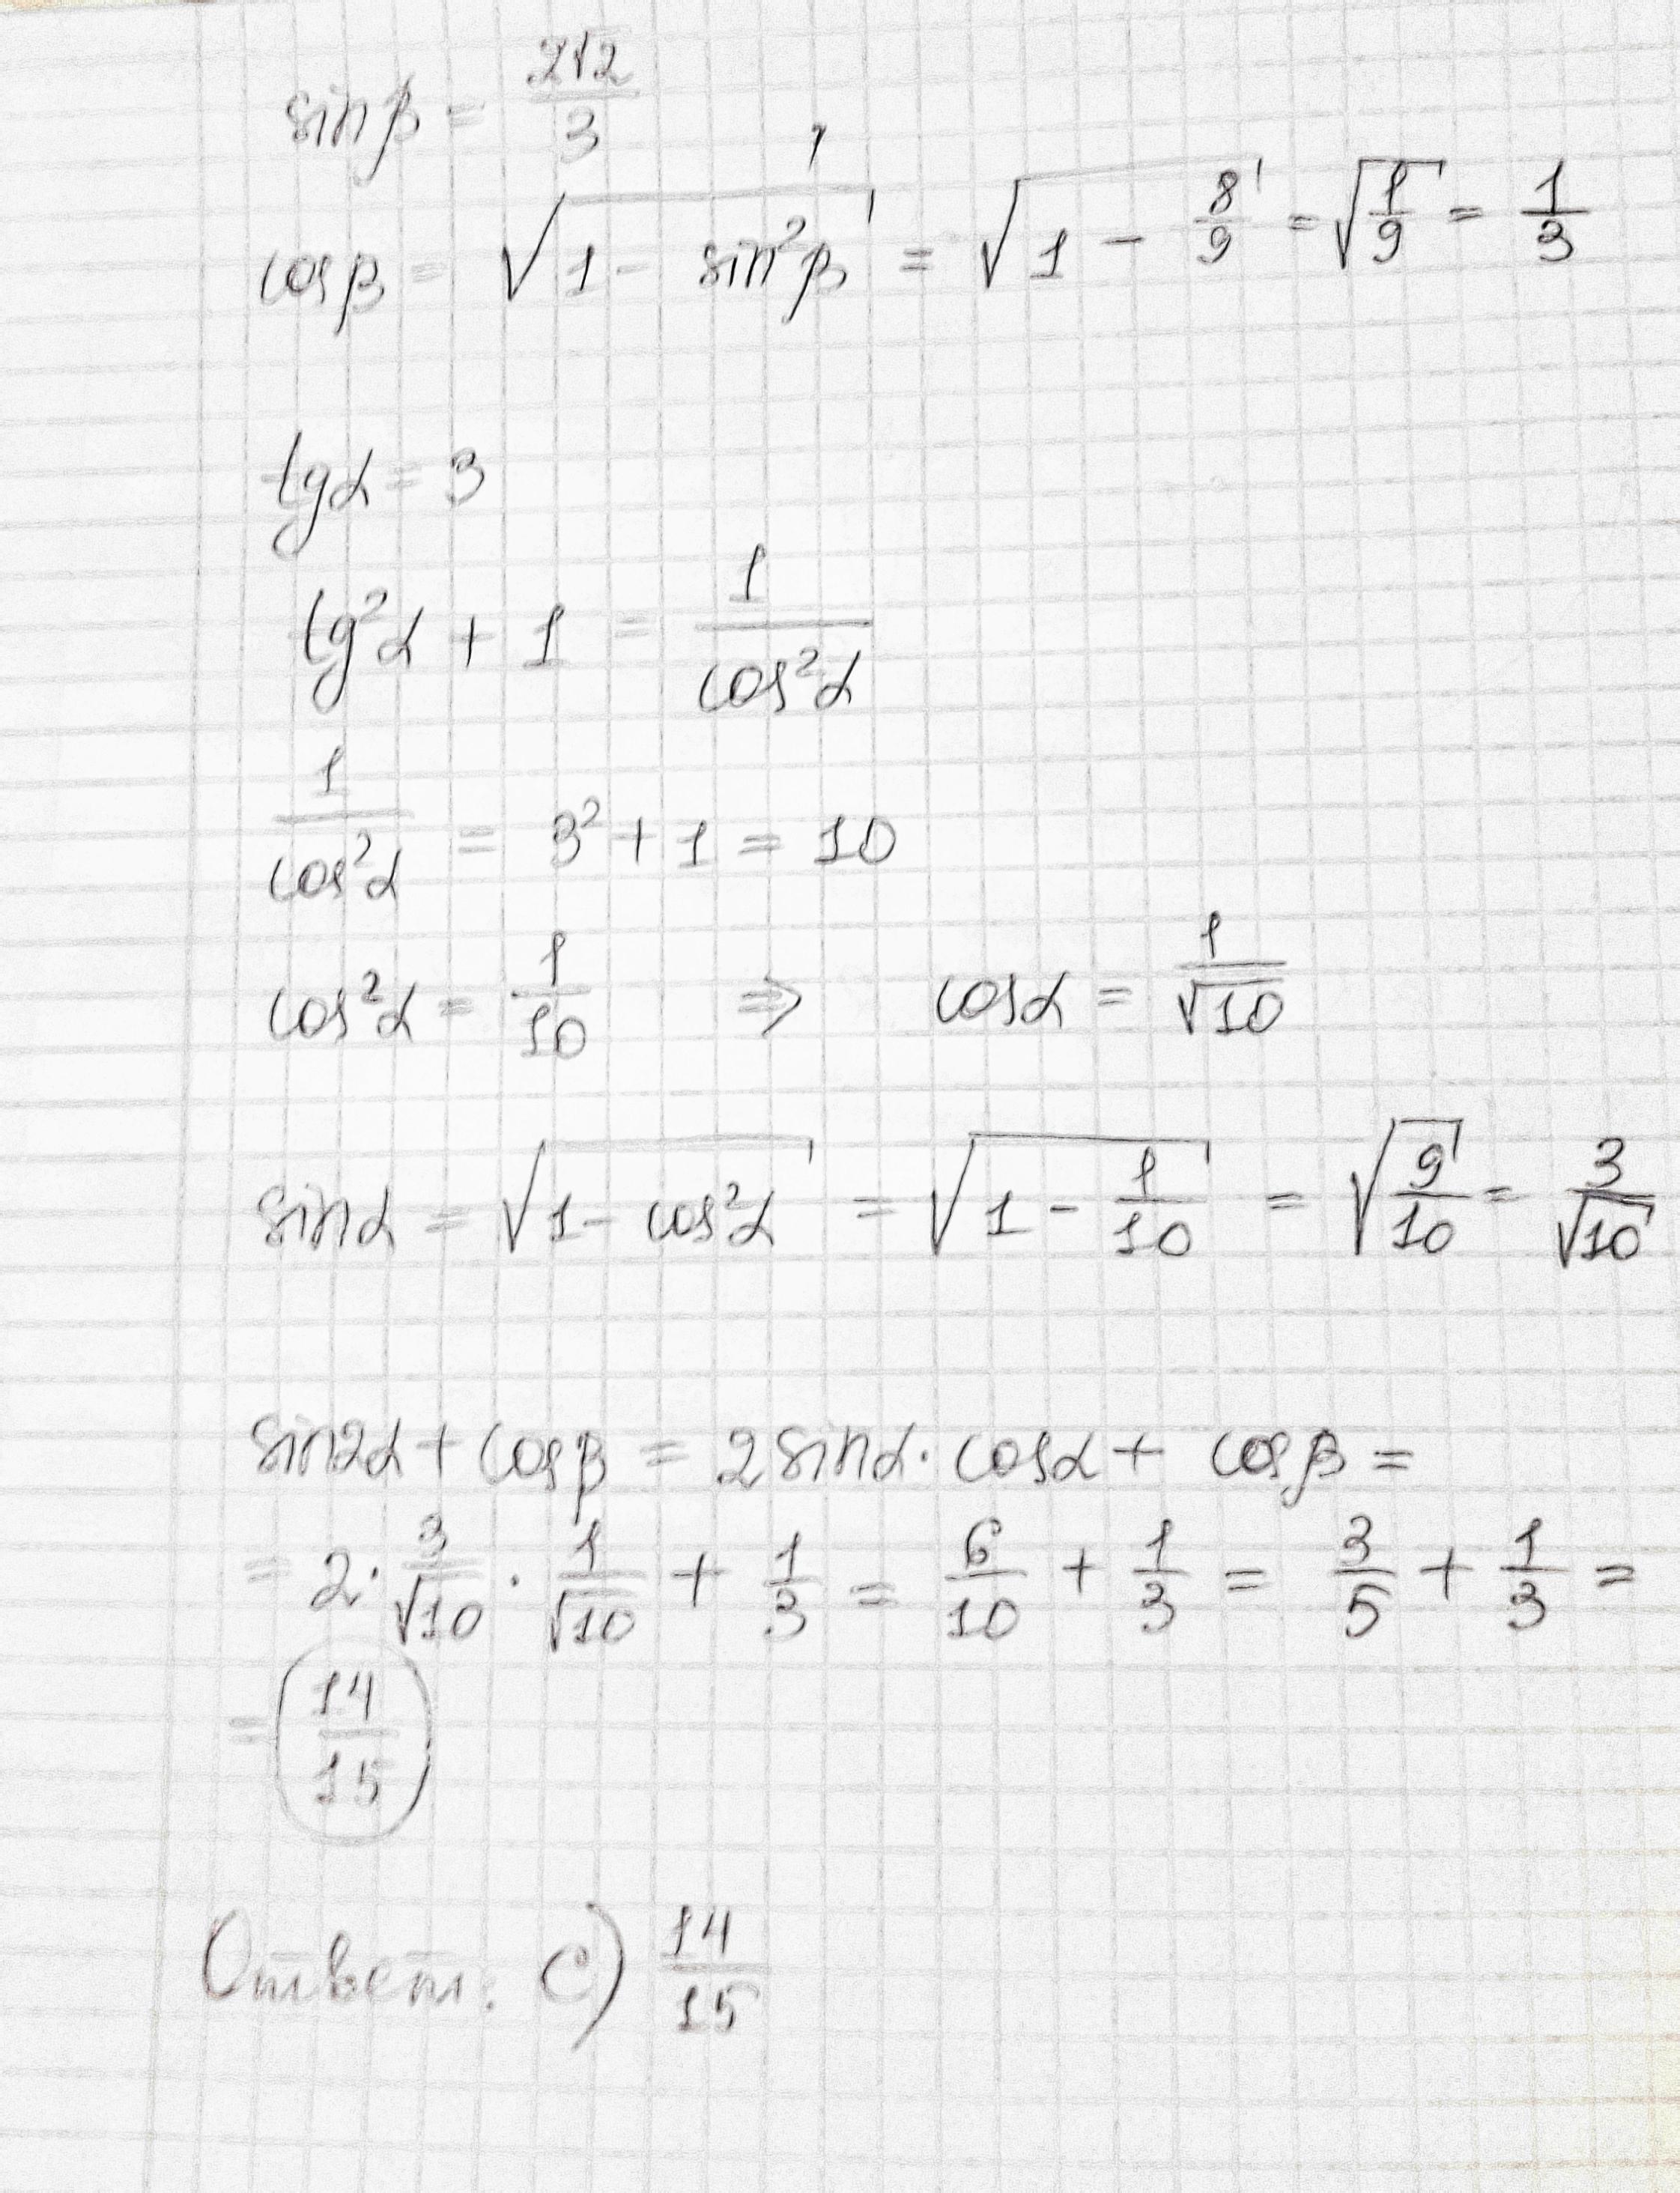 sinβ = 2√2/3
cosβ = √(1 - sin²β) = √(1 - 8/9) = √(1/9) = 1/3
tgα = 3
tg²α + 1 = 1/cos²α
1/cos²α = 3² + 1 = 10
cos²α = 1/10 ⇒ cosα = 1/√10
sinα = √(1 - cos²α) = √(1 - 1/10) = √(9/10) = 3/√10
sin2α + cosβ = 2sinα · cosα + cosβ =
= 2 · 3/√10 · 1/√10 + 1/3 = 6/10 + 1/3 = 3/5 + 1/3 =
= 14/15
Ответ: C) 14/15